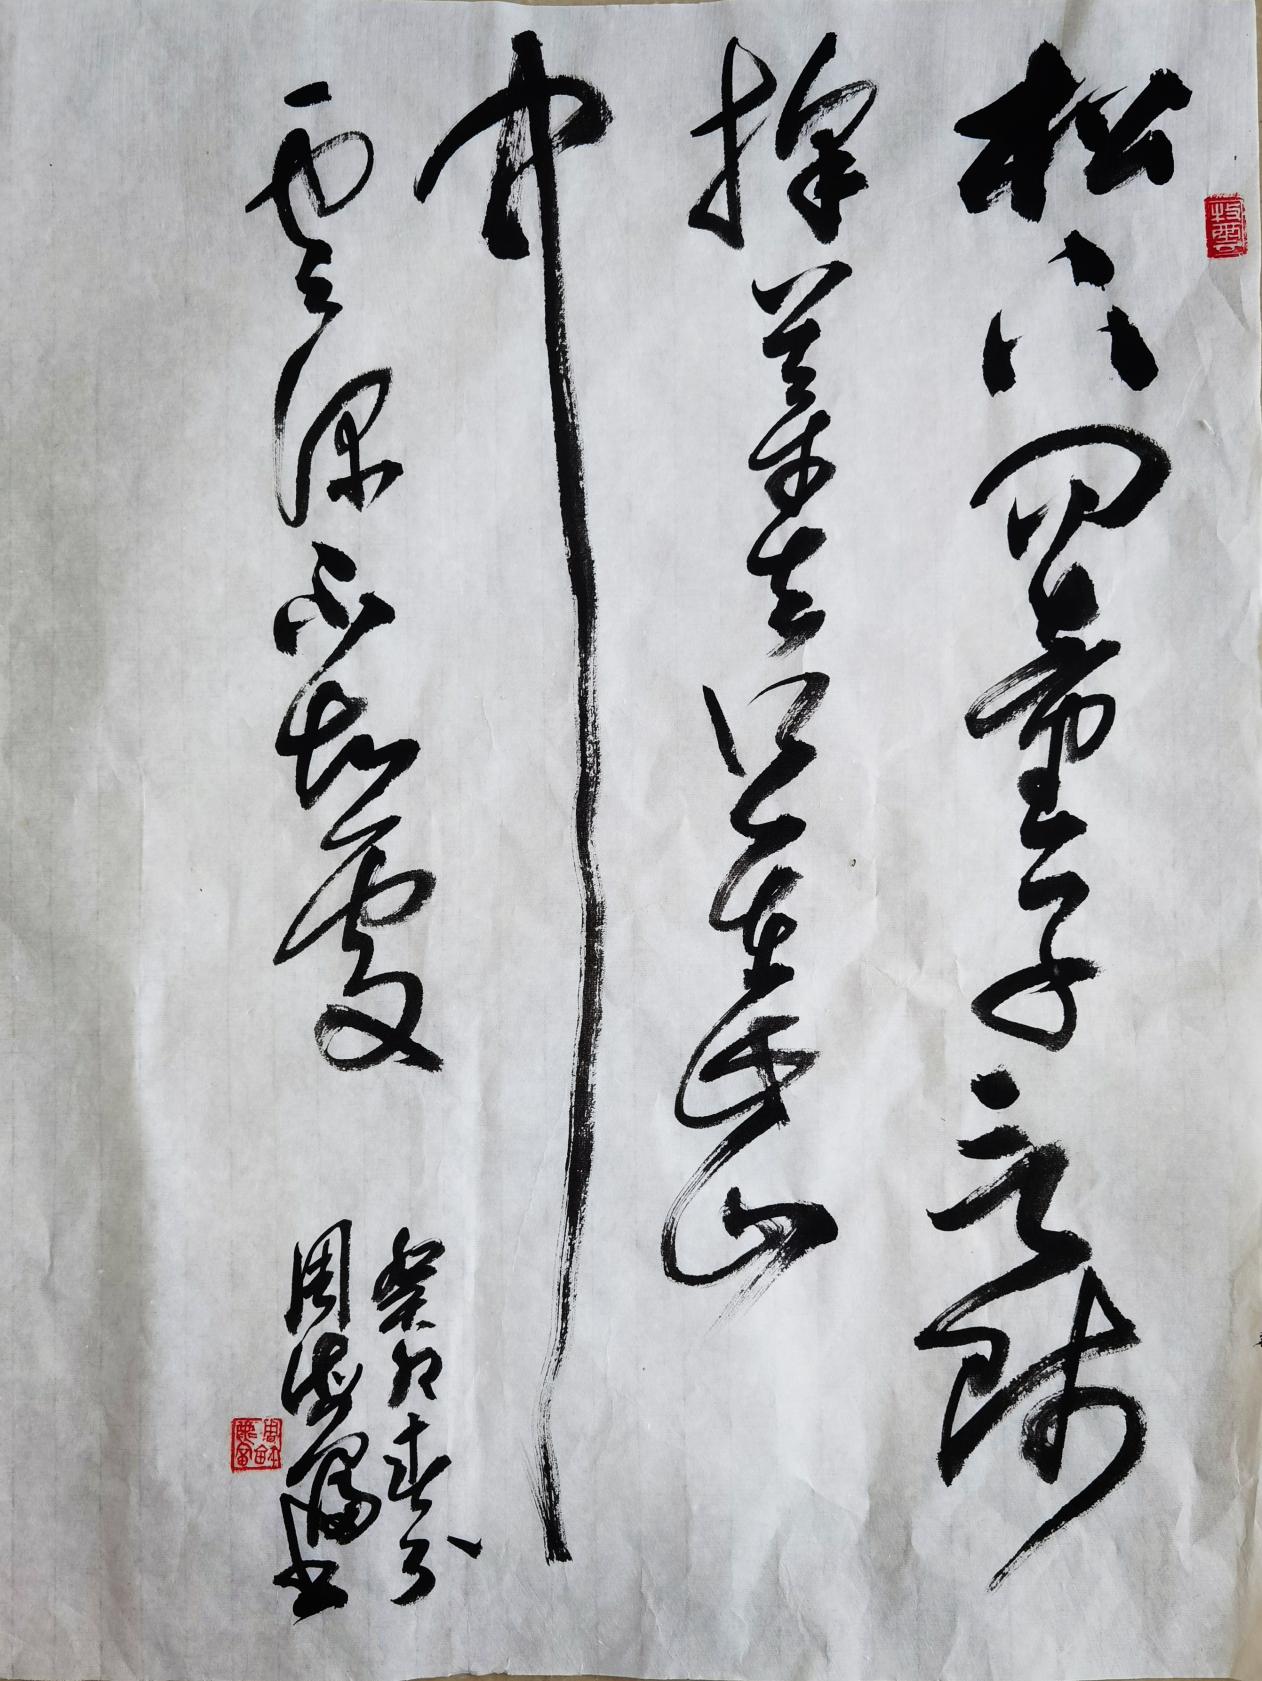 松下问童子言師
採藥去只在此山
中
雲深不知處
癸卯春分
周
書